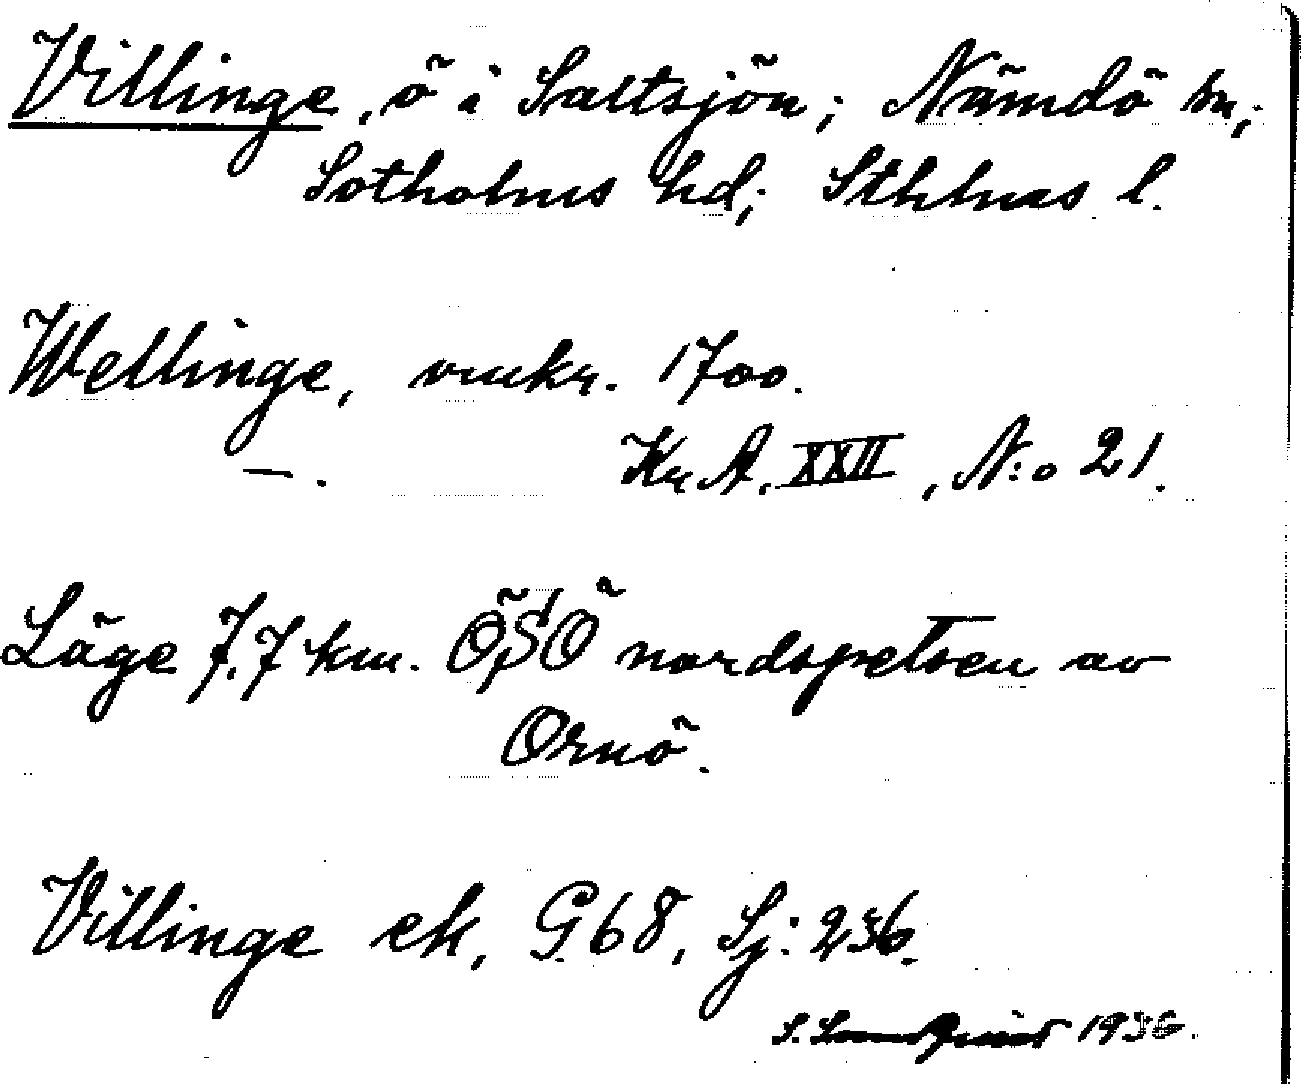 Villinge, ö i Saltsjön; Nämdö sn,;
Sotholms hd; Sthlms l.
Wellinge, omkr. 1700.
—. Kr A. XXII, N:o 21.
Läge 7.7 km. ÖSÖ nordspetsen av
Ornö.
Villinge ek, G68, Sj: 236.
S. 1936.